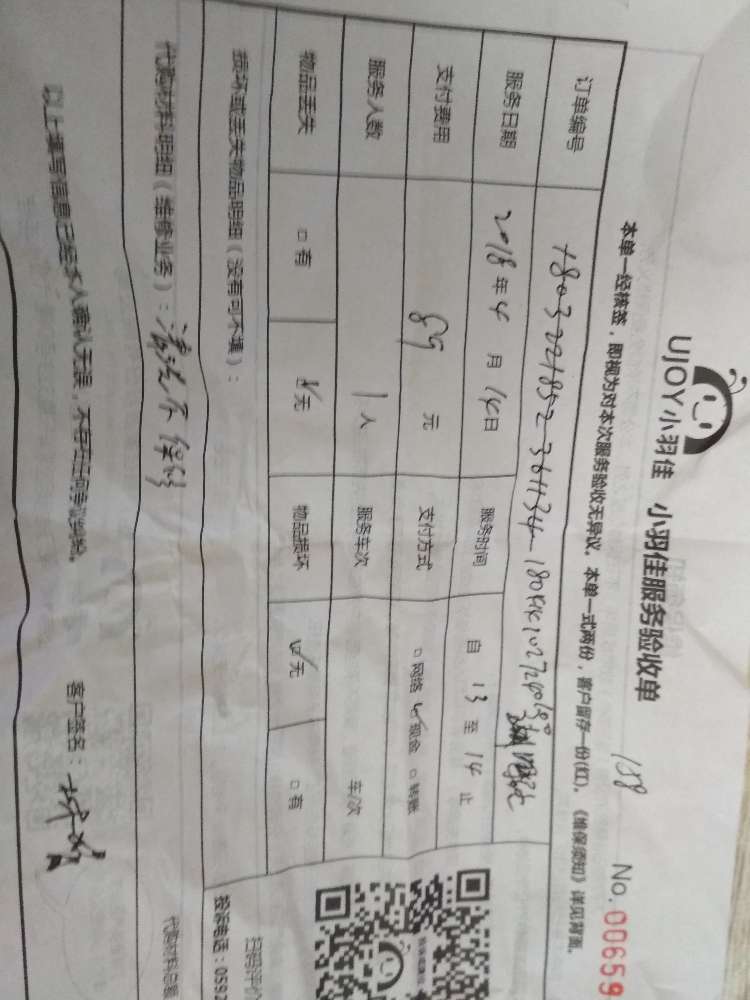 UJOY小羽佳 小羽佳服务验收单
158 No. 00659
本单一经核签，即视为对本次服务验收无异议。本单一式两份，客户留存一份(红)。《维保须知》详见背面。
订单编号
服务日期 2018年4月14日 服务时间 自 13 至 14 止
支付费用 89 元 支付方式 □网络 ☑现金 □转账
服务人数 1人 服务车次 车/次
物品丢失 □有 ☑无 物品损坏 ☑无 □有
损坏或丢失物品明细（没有可不填）：
代购材料明细（维修业务）：清洗不保修
代购材料总额
扫码评价
投诉电话：0592
以上填写信息已经本人确认无误，不存在任何争议纠纷。
客户签名：